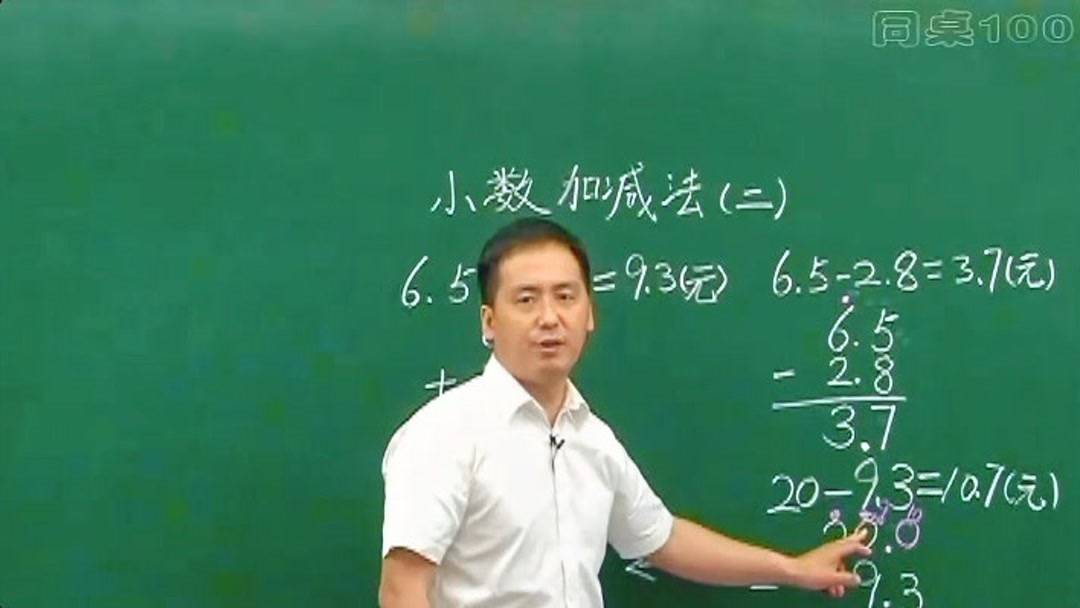 同桌100
小数加减法(二)
6.5 =9.3(元)
+
6.5-2.8=3.7(元)
6.5
- 2.8
3.7
20-9.3=10.7(元)
.0
- 9.3